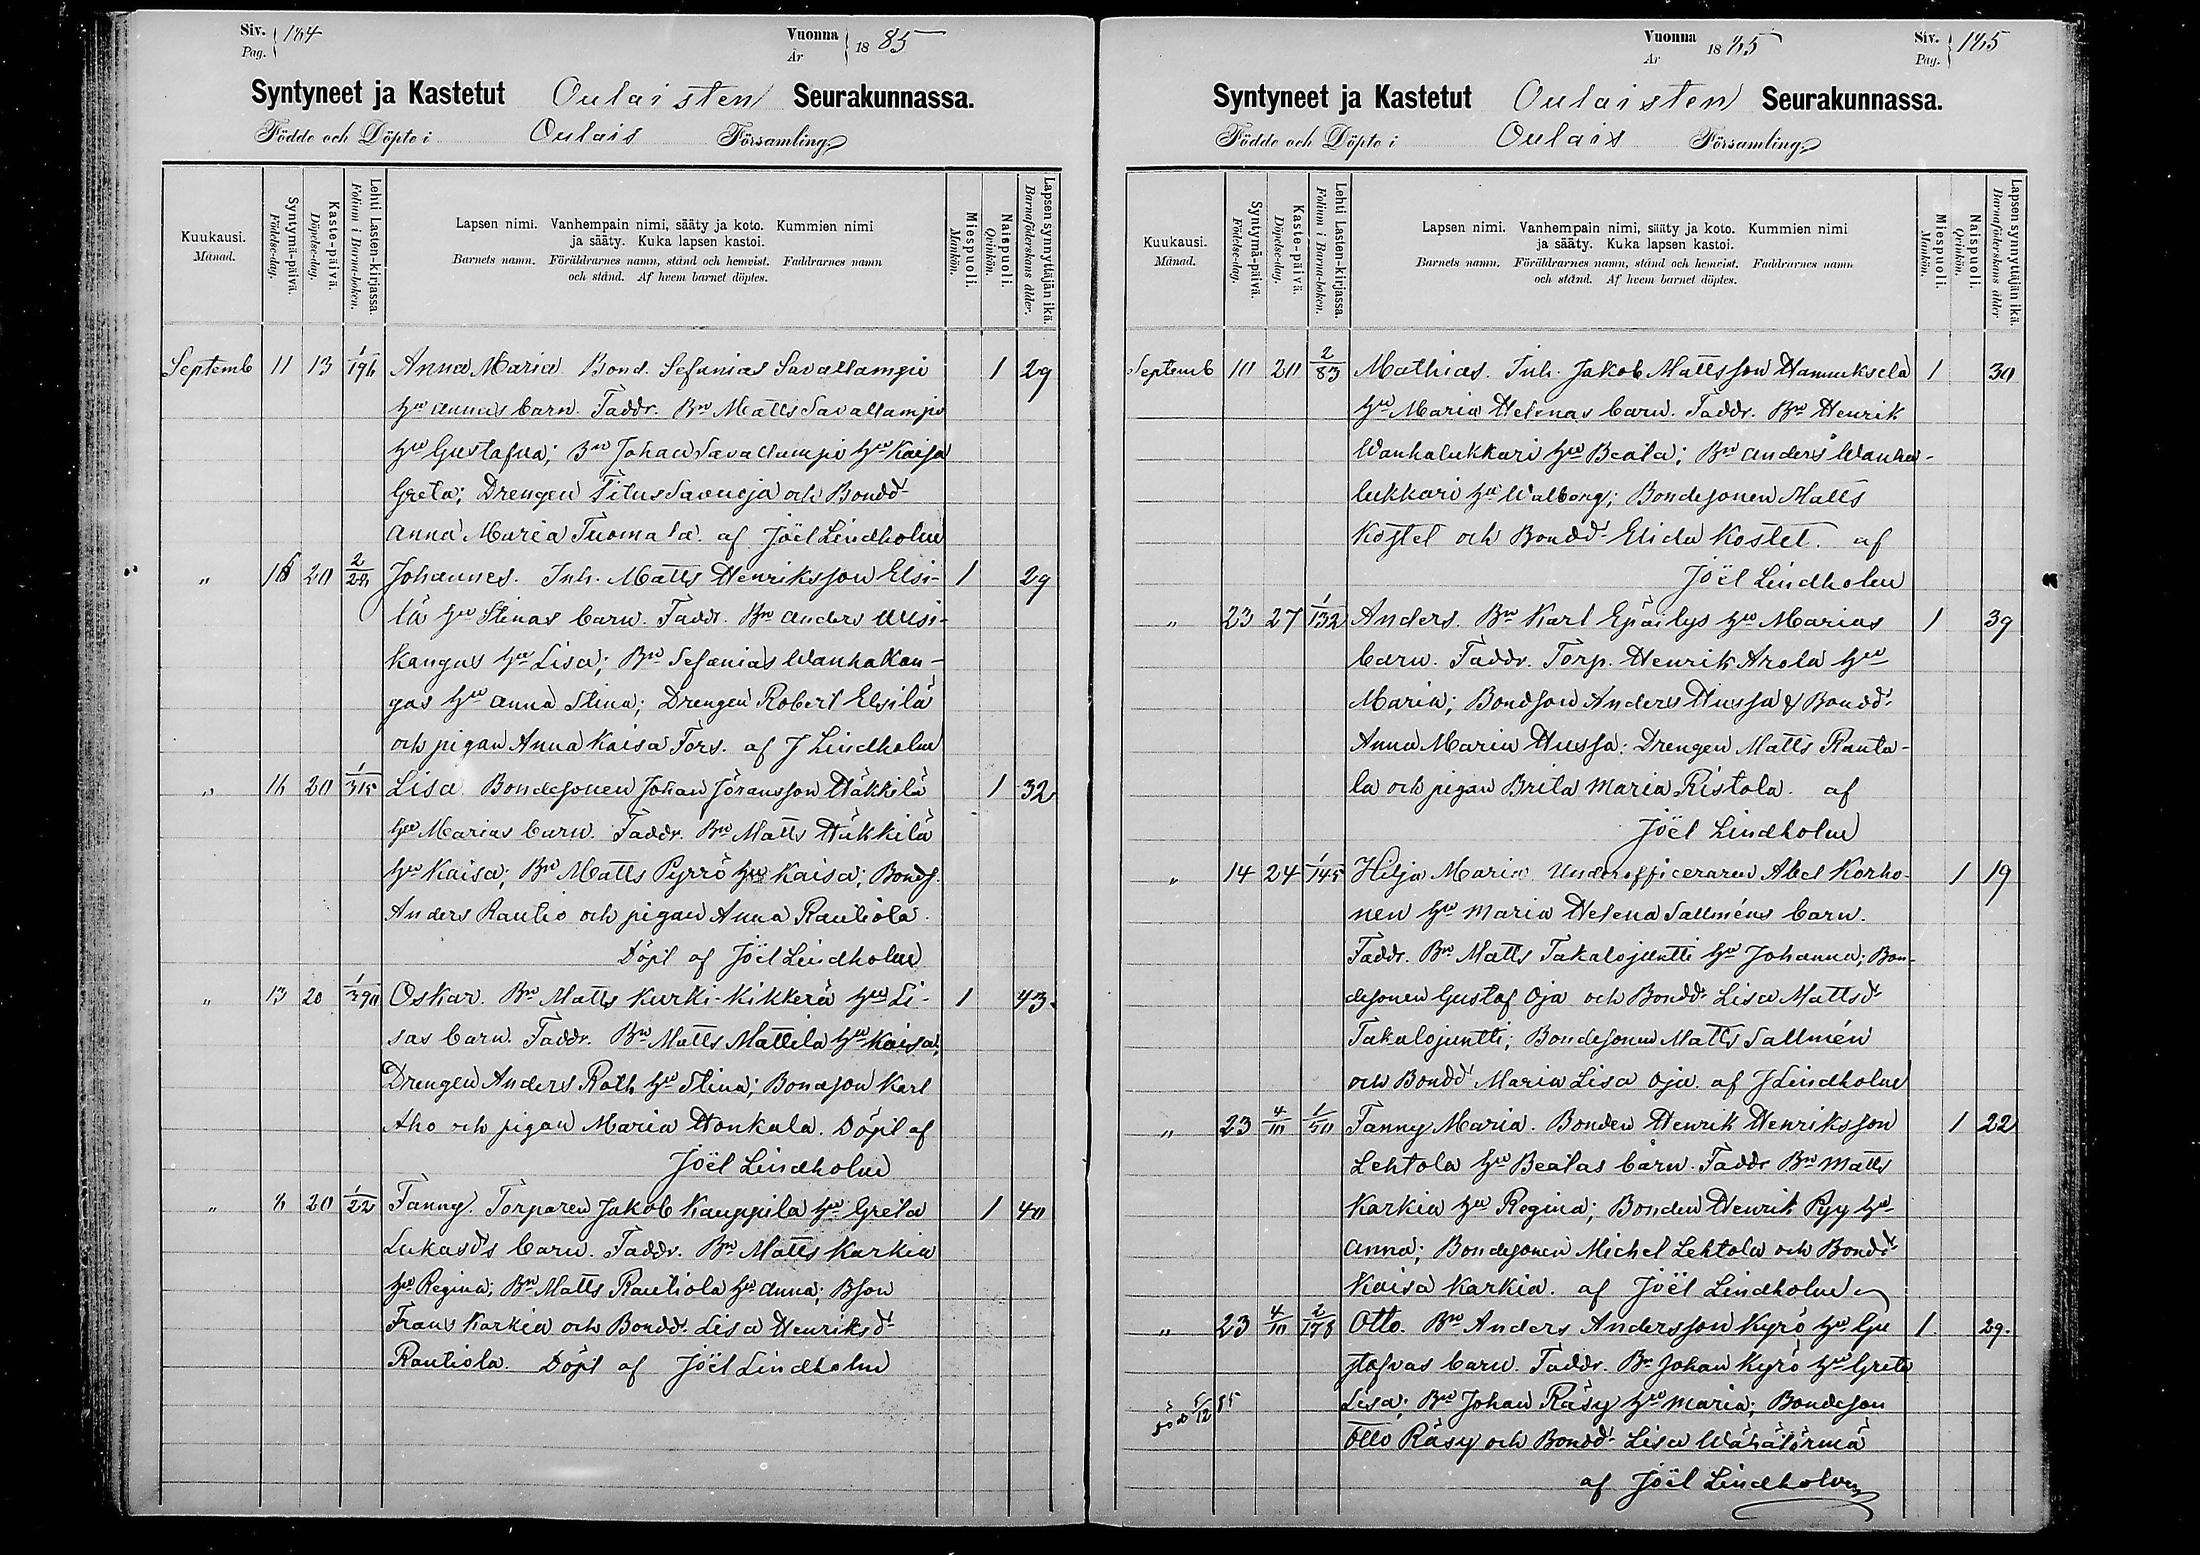 Siv. Pag. 184
Vuonna År 1885
Syntyneet ja Kastetut Oulaisten Seurakunnassa.
Födde och Döpte i Oulais Församling
Kuukausi. Månad.
Syntymä-päivä. Födelse-dag.
Kaste-päivä. Döpelse-dag.
Lehti Lasten-kirjassa. Folium i Barna-boken.
Lapsen nimi. Vanhempain nimi, sääty ja koto. Kummien nimi
ja sääty. Kuka lapsen kastoi.
Barnets namn. Föräldrarnes namn, stånd och hemvist. Faddrarnes namn
och stånd. Af hvem barnet döptes.
Miespuoli. Mankön.
Naispuoli. Qvinkön.
Lapsen synnyttäjän ikä. Barnaföderskans ålder.
Septemb 11 13 1/196 Anna Maria Bond. Sefanias Savallampi 1 29
hu Annas barn. Faddr. Bn Matts Savallampi
hu Gustafva; Bn Johan Savallampi hu Kajsa
Greta; Drengen Titus Savuoja och Bondd.
Anna Maria Tuomala. af Joël Lindholm
" 20 Johannes. Inh. Matts Henriksson Elsi- 1 29
lä hu Stinas barn. Faddr. Bn Anders Uusi-
kangas hu Lisa; Bn Sefanias Wanhakan-
gas hu Anna Stina; Drengen Robert Elsilä
och pigan Anna Kaisa Fors. af J Lindholm
" 16 20 1/315 Lisa Bondesonen Johan Jöransson Häkkilä 1 32
hu Marias barn. Faddr. Bn Matts Häkkilä
hu Kaisa; Bn Matts Pyrrö hu Kaisa; Bonds.
Anders Rautio och pigan Anna Rautiola.
Döpt af Joël Lindholm
" 13 20 1/390 Oskar. Bn Matts Kurki-Kikkerä hu Li- 1 43
sas barn. Faddr. Bn Matts Mattila hu Kaisa;
Drengen Anders Roth hu Stina; Bondson Karl
Aho och pigan Maria Honkala. Döpt af
Joël Lindholm
" 8 20 1/22 Fanny. Torparen Jakob Kauppila hu Greta 1 40
Lukasds barn. Faddr. Bn Matts Karkia
hu Regina; Bn Matts Rautiola hu Anna; Bson
Frans Karkia och Bondd. Lisa Henriksd.
Rautiola. Döpt af Joël Lindholm
Vuonna År 1885
Siv. Pag. 185
Syntyneet ja Kastetut Oulaisten Seurakunnassa.
Födde och Döpte i Oulais Församling
Kuukausi. Månad.
Syntymä-päivä. Födelse-dag.
Kaste-päivä. Döpelse-dag.
Lehti Lasten-kirjassa. Folium i Barna-boken.
Lapsen nimi. Vanhempain nimi, sääty ja koto. Kummien nimi
ja sääty. Kuka lapsen kastoi.
Barnets namn. Föräldrarnes namn, stånd och hemvist. Faddrarnes namn
och stånd. Af hvem barnet döptes.
Miespuoli. Mankön.
Naispuoli. Qvinkön.
Lapsen synnyttäjän ikä. Barnaföderskans ålder
Septemb 10 20 2/83 Mathias. Inh. Jakob Mattsson Hannuksela 1 30
hu Maria Helenas barn. Faddr. Bn Henrik
Wanhalukkari hu Beata; Bn Anders Wanha-
lukkari hu Walborg; Bondesonen Matts
Kostet och Bondd. Elida Kostet. af
Joël Lindholm
" 23 27 1/132 Anders. Bn Karl Epäilys hu Marias 1 39
barn. Faddr. Torp. Henrik Arola hu
Maria; Bondson Anders Hussa & Bondd.
Anna Maria Hussa; Drengen Matts Ranta-
la och pigan Brita Maria Ristola. af
Joël Lindholm
" 14 24 1/145 Hilja Maria Underofficeraren Abel Korho- 1 19
nen hu Maria Helena Salméns barn.
Faddr. Bn Matts Takalojuntti hu Johanna; Bon-
desonen Gustaf Oja och Bondd. Lisa Mattsd.
Takalojuntti; Bondesonen Matts Sallmén
och Bondd. Maria Lisa Oja. af J Lindholm
" 23 4/10 1/50 Fanny Maria. Bonden Henrik Henriksson 1 22
Lehtola hu Beatas barn. Faddr Bn Matts
Karkia hu Regina; Bonden Henrik Pyy hu
Anna; Bondesonen Michel Lehtola och Bondd.
Kaisa Karkia. af Joël Lindholm
" 23 4/10 2/178 Otto. Bn Anders Andersson Kyrö hu Gu 1 29.
stafvas barn. Faddr. Bn Johan Kyrö hu Greta
Lisa; Bn Johan Räsy hu Maria; Bondeson
Otto Räsy och Bondd. Lisa Wähätörmä
af Joël Lindholm